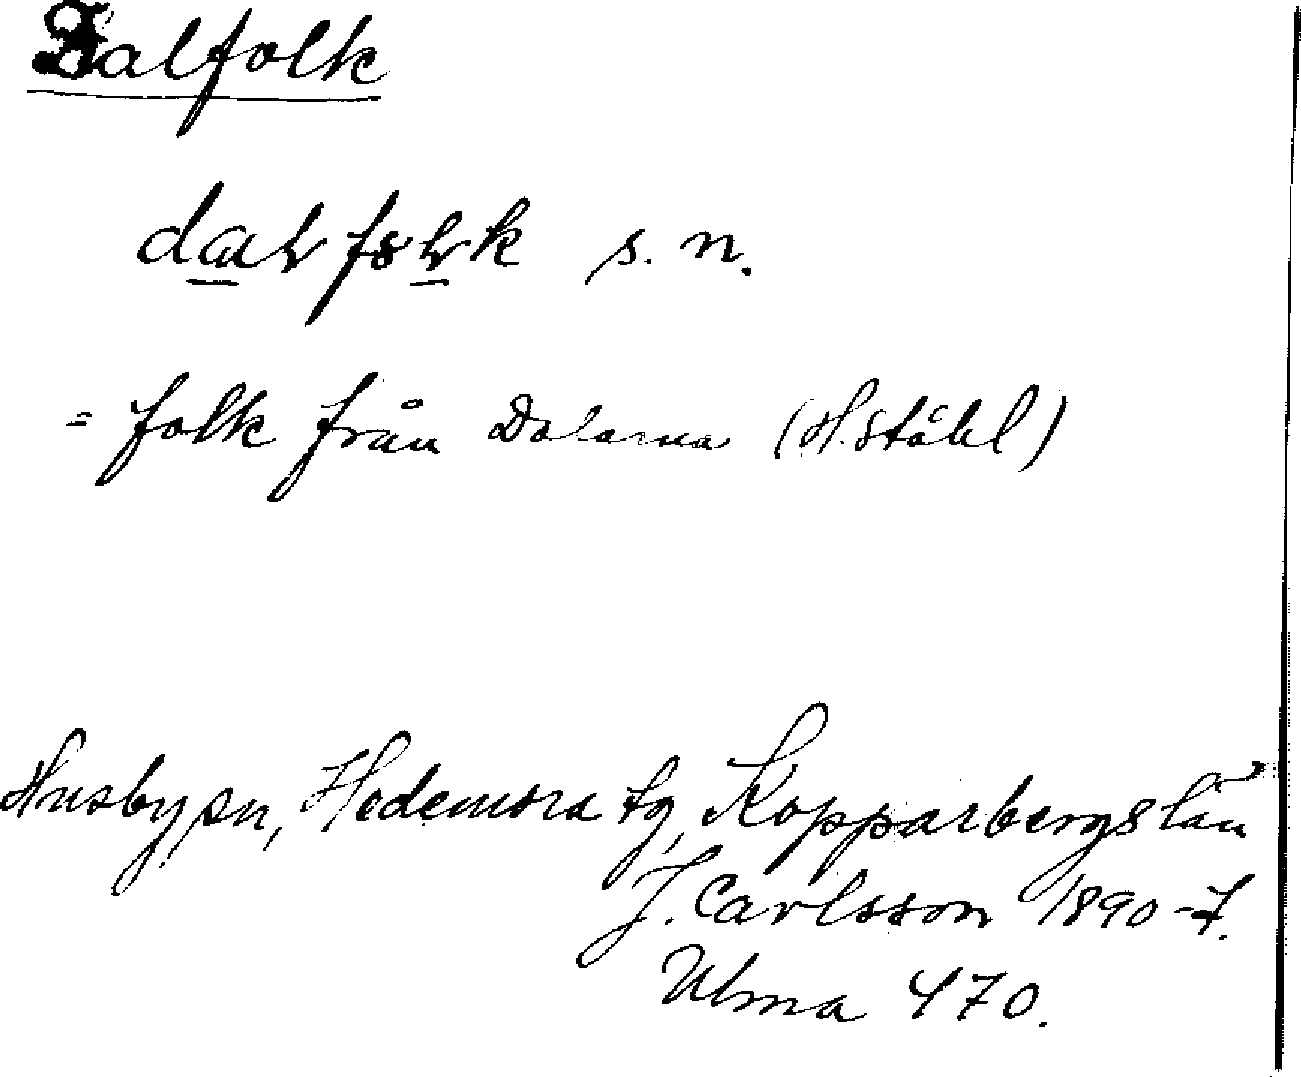 Dalfolk
s. n.
= folk från Dalarna (H. Ståhl)
Husby sn, Hedemora tg, Kopparbergs län
J. Carlsson 1890-t.
Ulma 470.